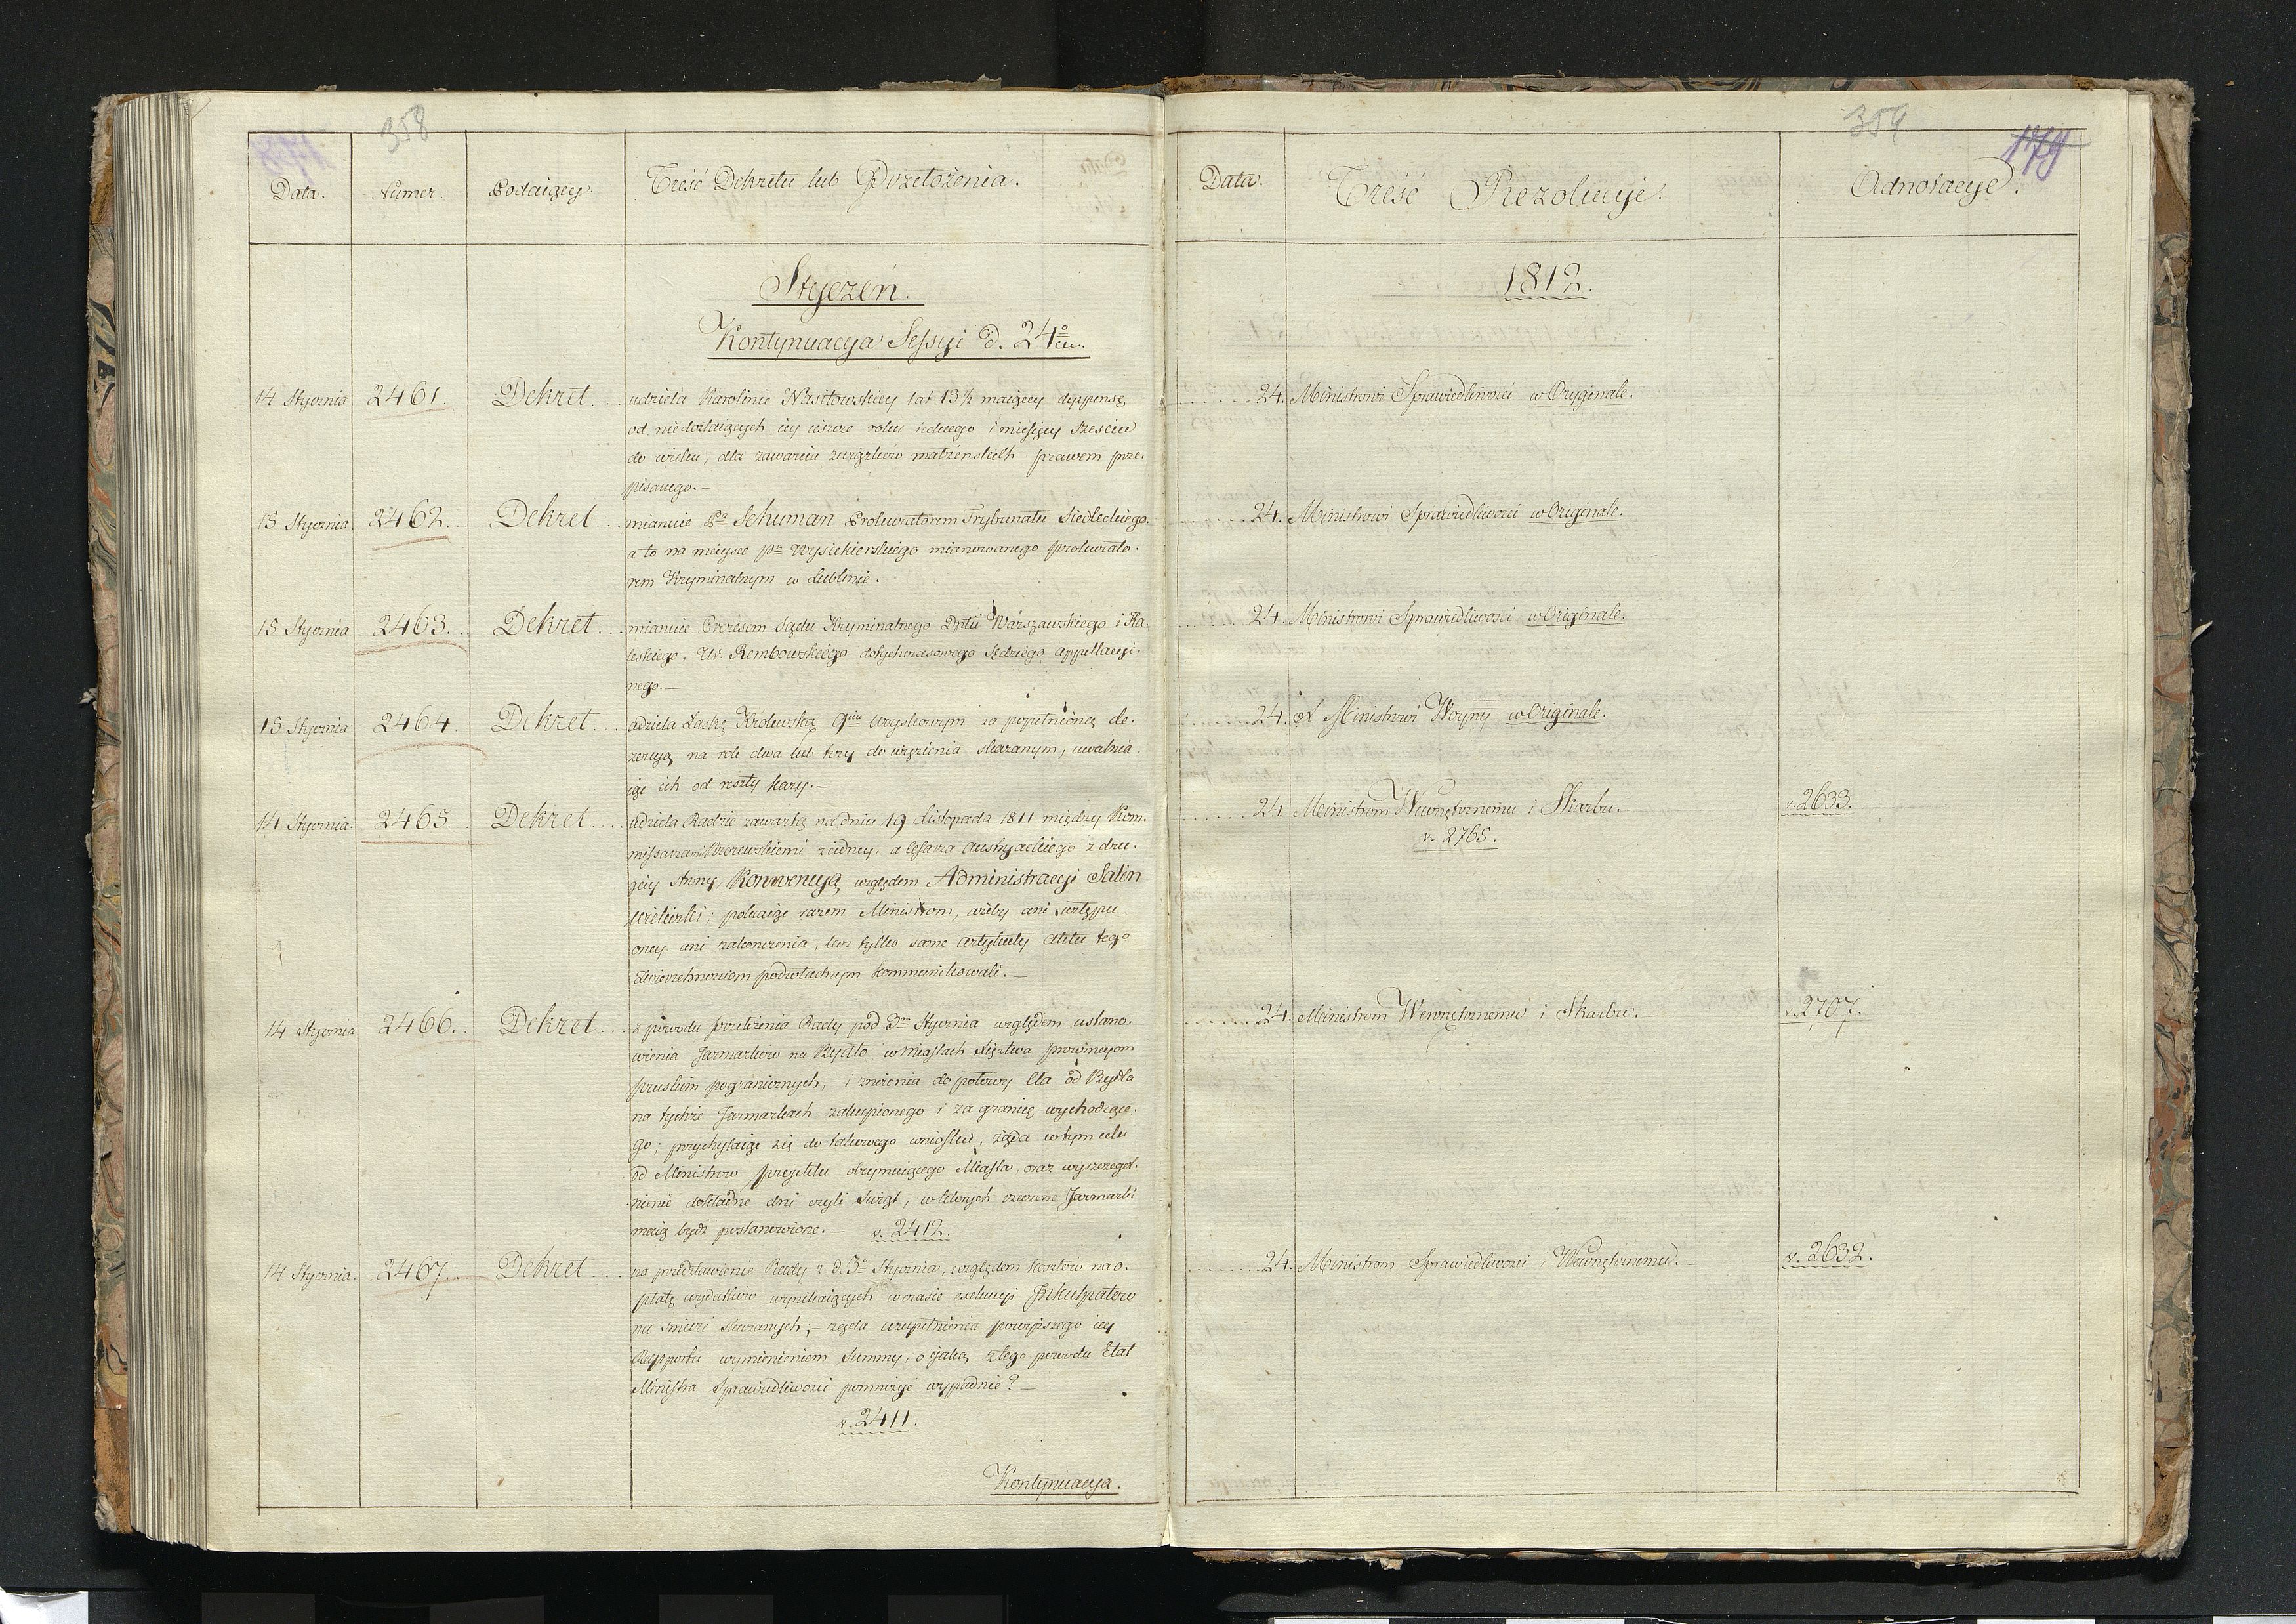 358
Data.
Numer.
Podaiący.
Treść Dekretu lub Przełożenia.
Styczeń.
Kontynuacya Sessyi d. 24º
14 Stycznia 2461. Dekret... udziela Karolinie Wasiłowskiey lat 13½ maiącey dyspensę
od niedostaiących iey ieszcze roku iednego i miesięcy sześciu
do wieku, dla zawarcia związków małżeńskich prawem prze-
pisanego.—
15 Stycznia 2462. Dekret... mianuie Pa Schuman Prokuratorem Trybunału Siedleckiego.
a to na mieysce pa Wysiekierskiego mianowanego prokurato-
rem Kryminalnym w Lublinie.
15 Stycznia 2463. Dekret... mianuie Prezesem Sądu Kryminalnego Dptu Warszawskiego i Ka-
liskiego, Ur. Rembowskiego dotychczasowego Sędziego appellacyi-
nego.—
15 Stycznia 2464 Dekret... udziela Łaskę Królewską 9ciu woyskowym za popełnioną de-
zercyą na rok dwa lub trzy do więzienia skazanym, uwalnia-
iąc ich od reszty kary.—
14 Stycznia. 2465. Dekret... udziela Radzie zawartą na dniu 19 Listopada 1811 między Kom-
missarzami Krolewskiemi z iedney, a Cesarza Austryackiego z dru-
giey strony, Konwencyą względem Administracyi Salin
Wieliczki; polecaiąc razem Ministrom, ażeby ani wstępu
oney ani zakonczenia, lecz tylko same artykuły aktu tego
Zwierzchnościom podwładnym kommunikowali.—
14 Stycznia 2466. Dekret... z powodu przełożenia Rady pod 3m Stycznia względem ustano-
wienia Jarmarków na Bydło w miastach Xięztwa prowincyom
pruskim pogranicznych, i zniżenia do połowy Cła od Bydła
na tychże Jarmarkach zakupionego i za granicę wychodzące-
go; przychylaiąc się do takowego wniosku, żąda w tym celu
od Ministrow projektu obeymuiącego Miasta, oraz wyszczegól-
nienie dokładne dni czyli Swiąt, w których rzeczone Jarmarki
maią bydź postanowione.— v. 2412.
14 Stycznia. 2467. Dekret... na przedstawienie Rady z d. 3º Stycznia, względem kosztów na o-
płatę wydatków wynikaiących w czasie exekucyi Inkulpatów
na śmierć skazanych;— żąda uzupełnienia powyższego iey
Rapportu wymienieniem summy, o iaką z tego powodu Etat
Ministra Sprawiedliwości pomnożyć wypadnie?—
v. 2411.
Kontynuacya.
359
179
Data.
Treść Rezolucyi.
Adnotacye.
1812.
24. Ministrowi Sprawiedliwości w Oryginale.
24. Ministrowi Sprawiedliwości w Originale.
24. Ministrowi Sprawiedliwości w Originale.
24. Ministrowi Woyny w Originale.
24. Ministrom Wewnętrznemu i Skarbu.— v. 2633.
v. 2765.
24. Ministrom Wewnętrznemu i Skarbu.— v. 2707.
24. Ministrom Sprawiedliwości i Wewnętrznemu.— v. 2632.